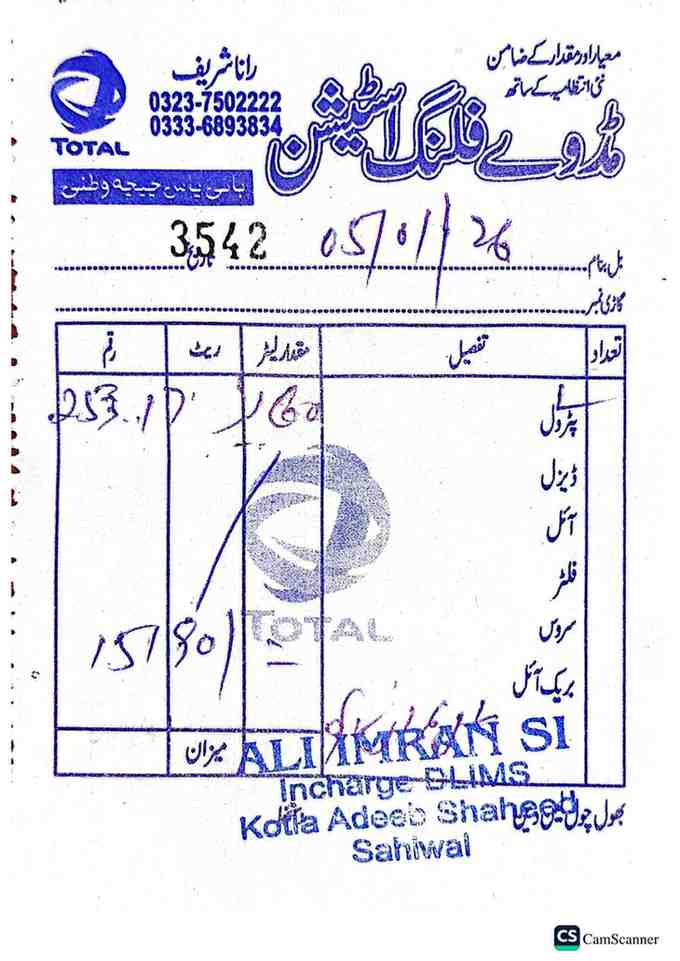 معیار اور مقدار کے ضامن
نئی انتظامیہ کے ساتھ
رانا شریف
0323-7502222
0333-6893834
TOTAL
مڈوے فلنگ اسٹیشن
بائی پاس چیچہ وطنی
3542 تاریخ 05/01/26
بل بنام
گاڑی نمبر
تعداد تفصیل مقدار لیٹر ریٹ رقم
پٹرول 60 253.17
ڈیزل
آئل
فلٹر
سروس
15190/=
بریک آئل
TOTAL
میزان
ALI IMRAN SI
Incharge DLIMS
Kotla Adeeb Shaheed
Sahiwal
بھول چوک لین دین
CS CamScanner